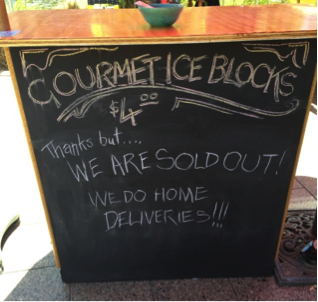 GOURMET ICE BLOCKS
$4.00
Thanks but....
WE ARE SOLD OUT!
WE DO HOME
DELIVERIES!!!